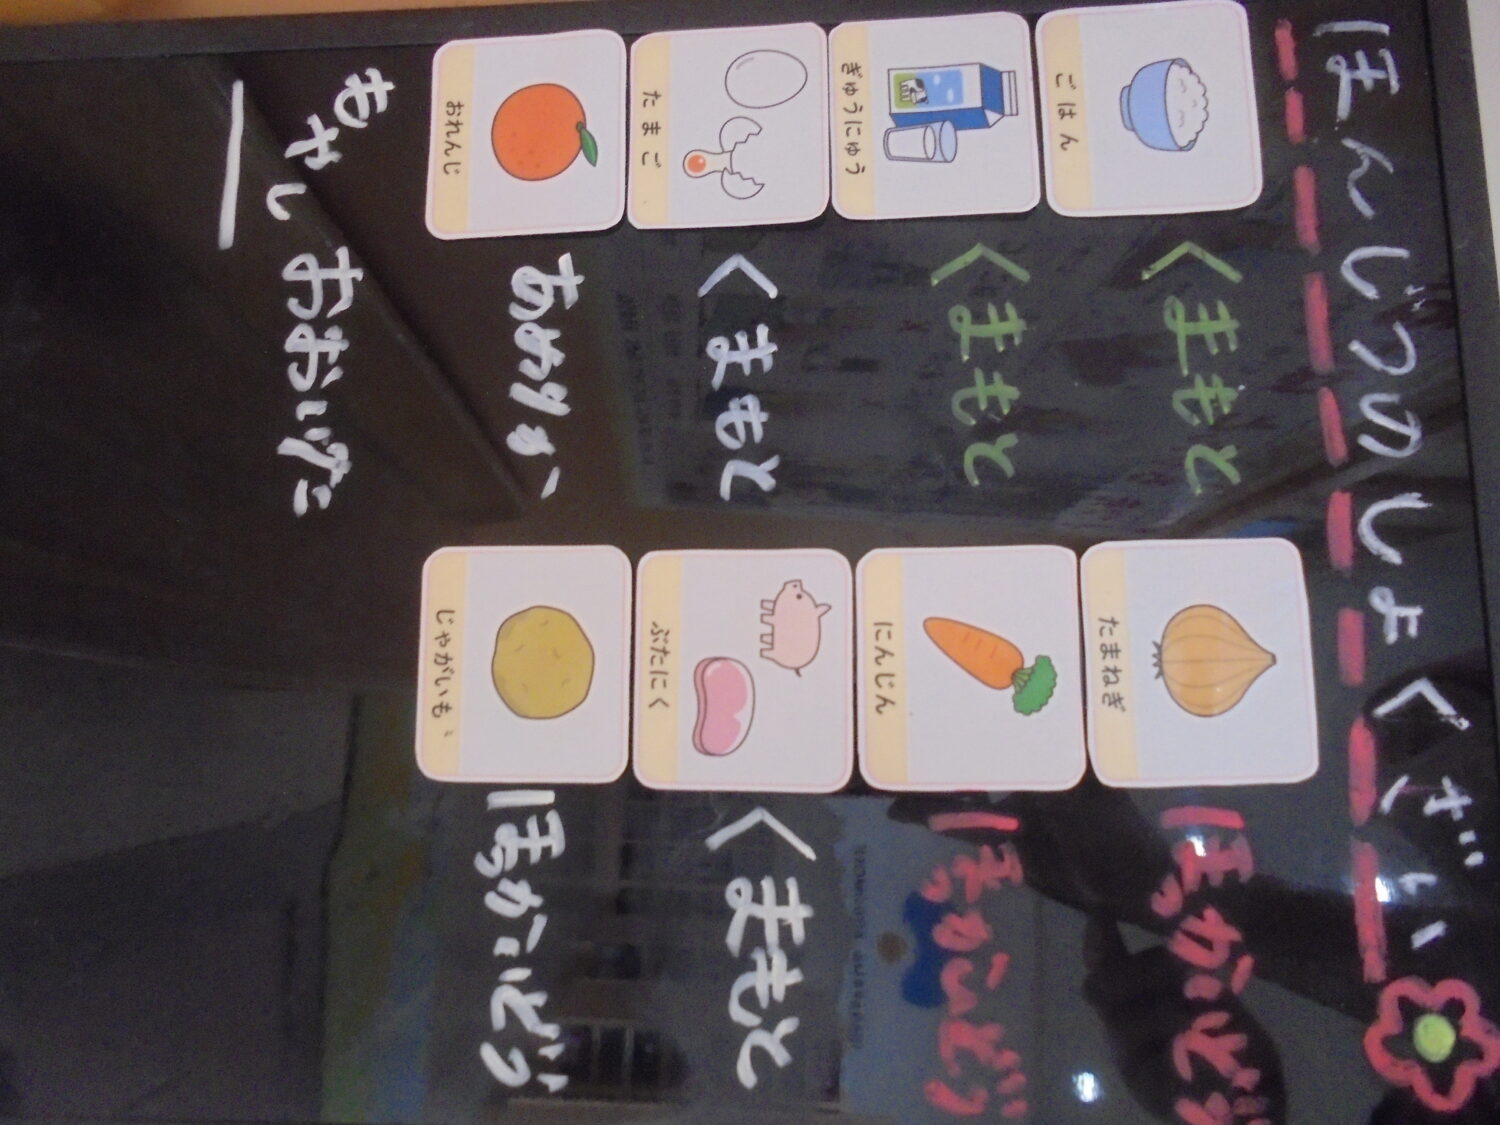 ほんじつのしょくざい
ごはん くまもと たまねぎ ほっかいどう
ぎゅうにゅう くまもと にんじん ほっかいどう
たまご くまもと ぶたにく くまもと
おれんじ あめりか じゃがいも ほっかいどう
もやし おおいた